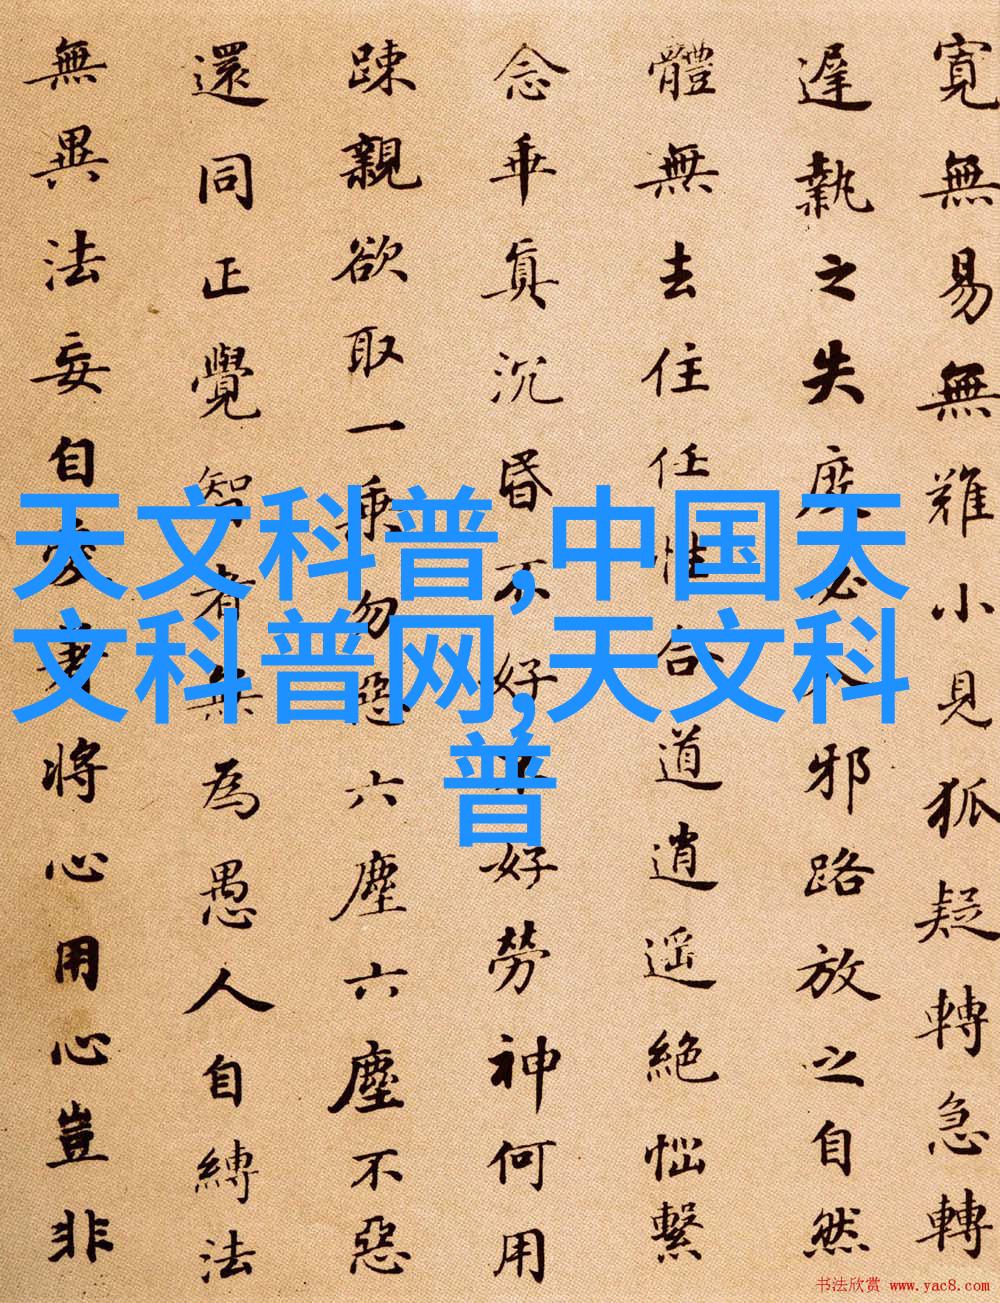 天文科普,中国天
文科普网,天文科
普
寬無易無難小見狐疑轉急轉
遲執之失度必入邪路放之自然
體無去住任性合道逍遥絶惱繫
念乖真沉昏不好不好勞神何用
踈親欲取一乘勿惡六塵六塵不惡
還同正覺智者無為愚人自縛法
無異法妄自愛著將心用心豈非
书法欣赏 www.yac8.com